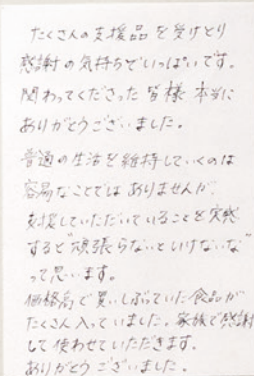 たくさんの支援品を受けとり
感謝の気持ちでいっぱいです。
関わってくださった皆様本当に
ありがとうございました。
普通の生活を維持していくのは
容易なことではありませんが、
支援していただいていることを実感
すると"頑張らないといけないな"
って思います。
価格高で買いしぶっていた食品が
たくさん入っていました。家族で感謝
して使わせていただきます。
ありがとうございました。